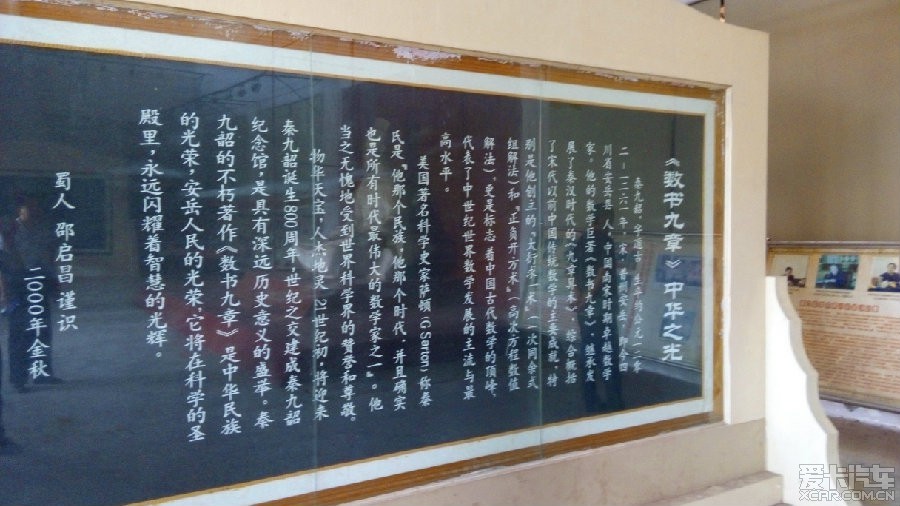 《数书九章》中华之光
秦九韶,字道古,生于约公元一二零
二-一二六一年,宋·普州安岳,即今四
川省安岳县人,中国南宋时期卓越数学
家。他的数学巨著《数书九章》,继承发
展了秦汉时代的《九章算术》,综合概括
了宋代以前中国传统数学的主要成就,特
别是他创立的"大衍求一术"(一次同余式
组解法)和"正负开方术"(高次方程数值
解法),更是标志着中国古代数学的顶峰,
代表了中世纪世界数学发展的主流与最
高水平。
美国著名科学史家萨顿(G·Sarton)称秦
氏是"他那个民族,他那个时代,并且确实
也是所有时代最伟大的数学家之一"。他
当之无愧地受到世界科学界的赞誉和尊敬。
物华天宝,人杰地灵,21世纪初,将迎来
秦九韶诞生800周年,世纪之交建成秦九韶
纪念馆,是具有深远历史意义的盛举。秦
九韶的不朽著作《数书九章》是中华民族
的光荣,安岳人民的光荣,它将在科学的圣
殿里,永远闪耀着智慧的光辉。
蜀人 邵启昌 谨识
二000年金秋
爱卡汽车
XCAR.COM.CN